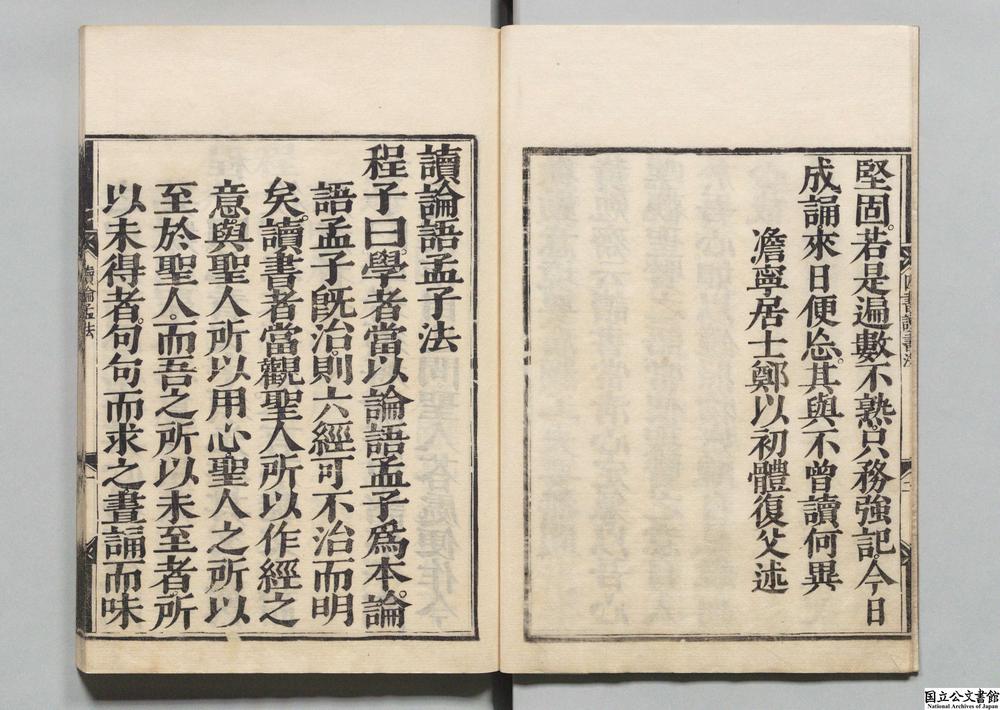 堅固。若是遍數不熟。只務強記。今日
成誦來日便忘。其與不曾讀何異
澹寧居士鄭以初體復父述
讀論語孟子法
程子曰學者當以論語孟子爲本。論
語孟子旣治。則六經可不治而明
矣。讀書者當觀聖人所以作經之
意。與聖人所以用心。聖人之所以
至於聖人。而吾之所以未至者所
以未得者。句句而求之晝誦而味
讀論孟法
国立公文書館
National Archives of Japan